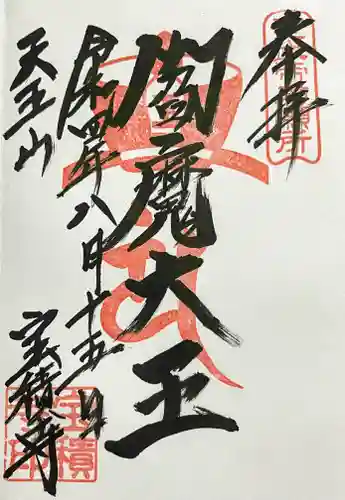 奉拝
閻魔大王
令和四年八月十五日
天王山
宝積寺